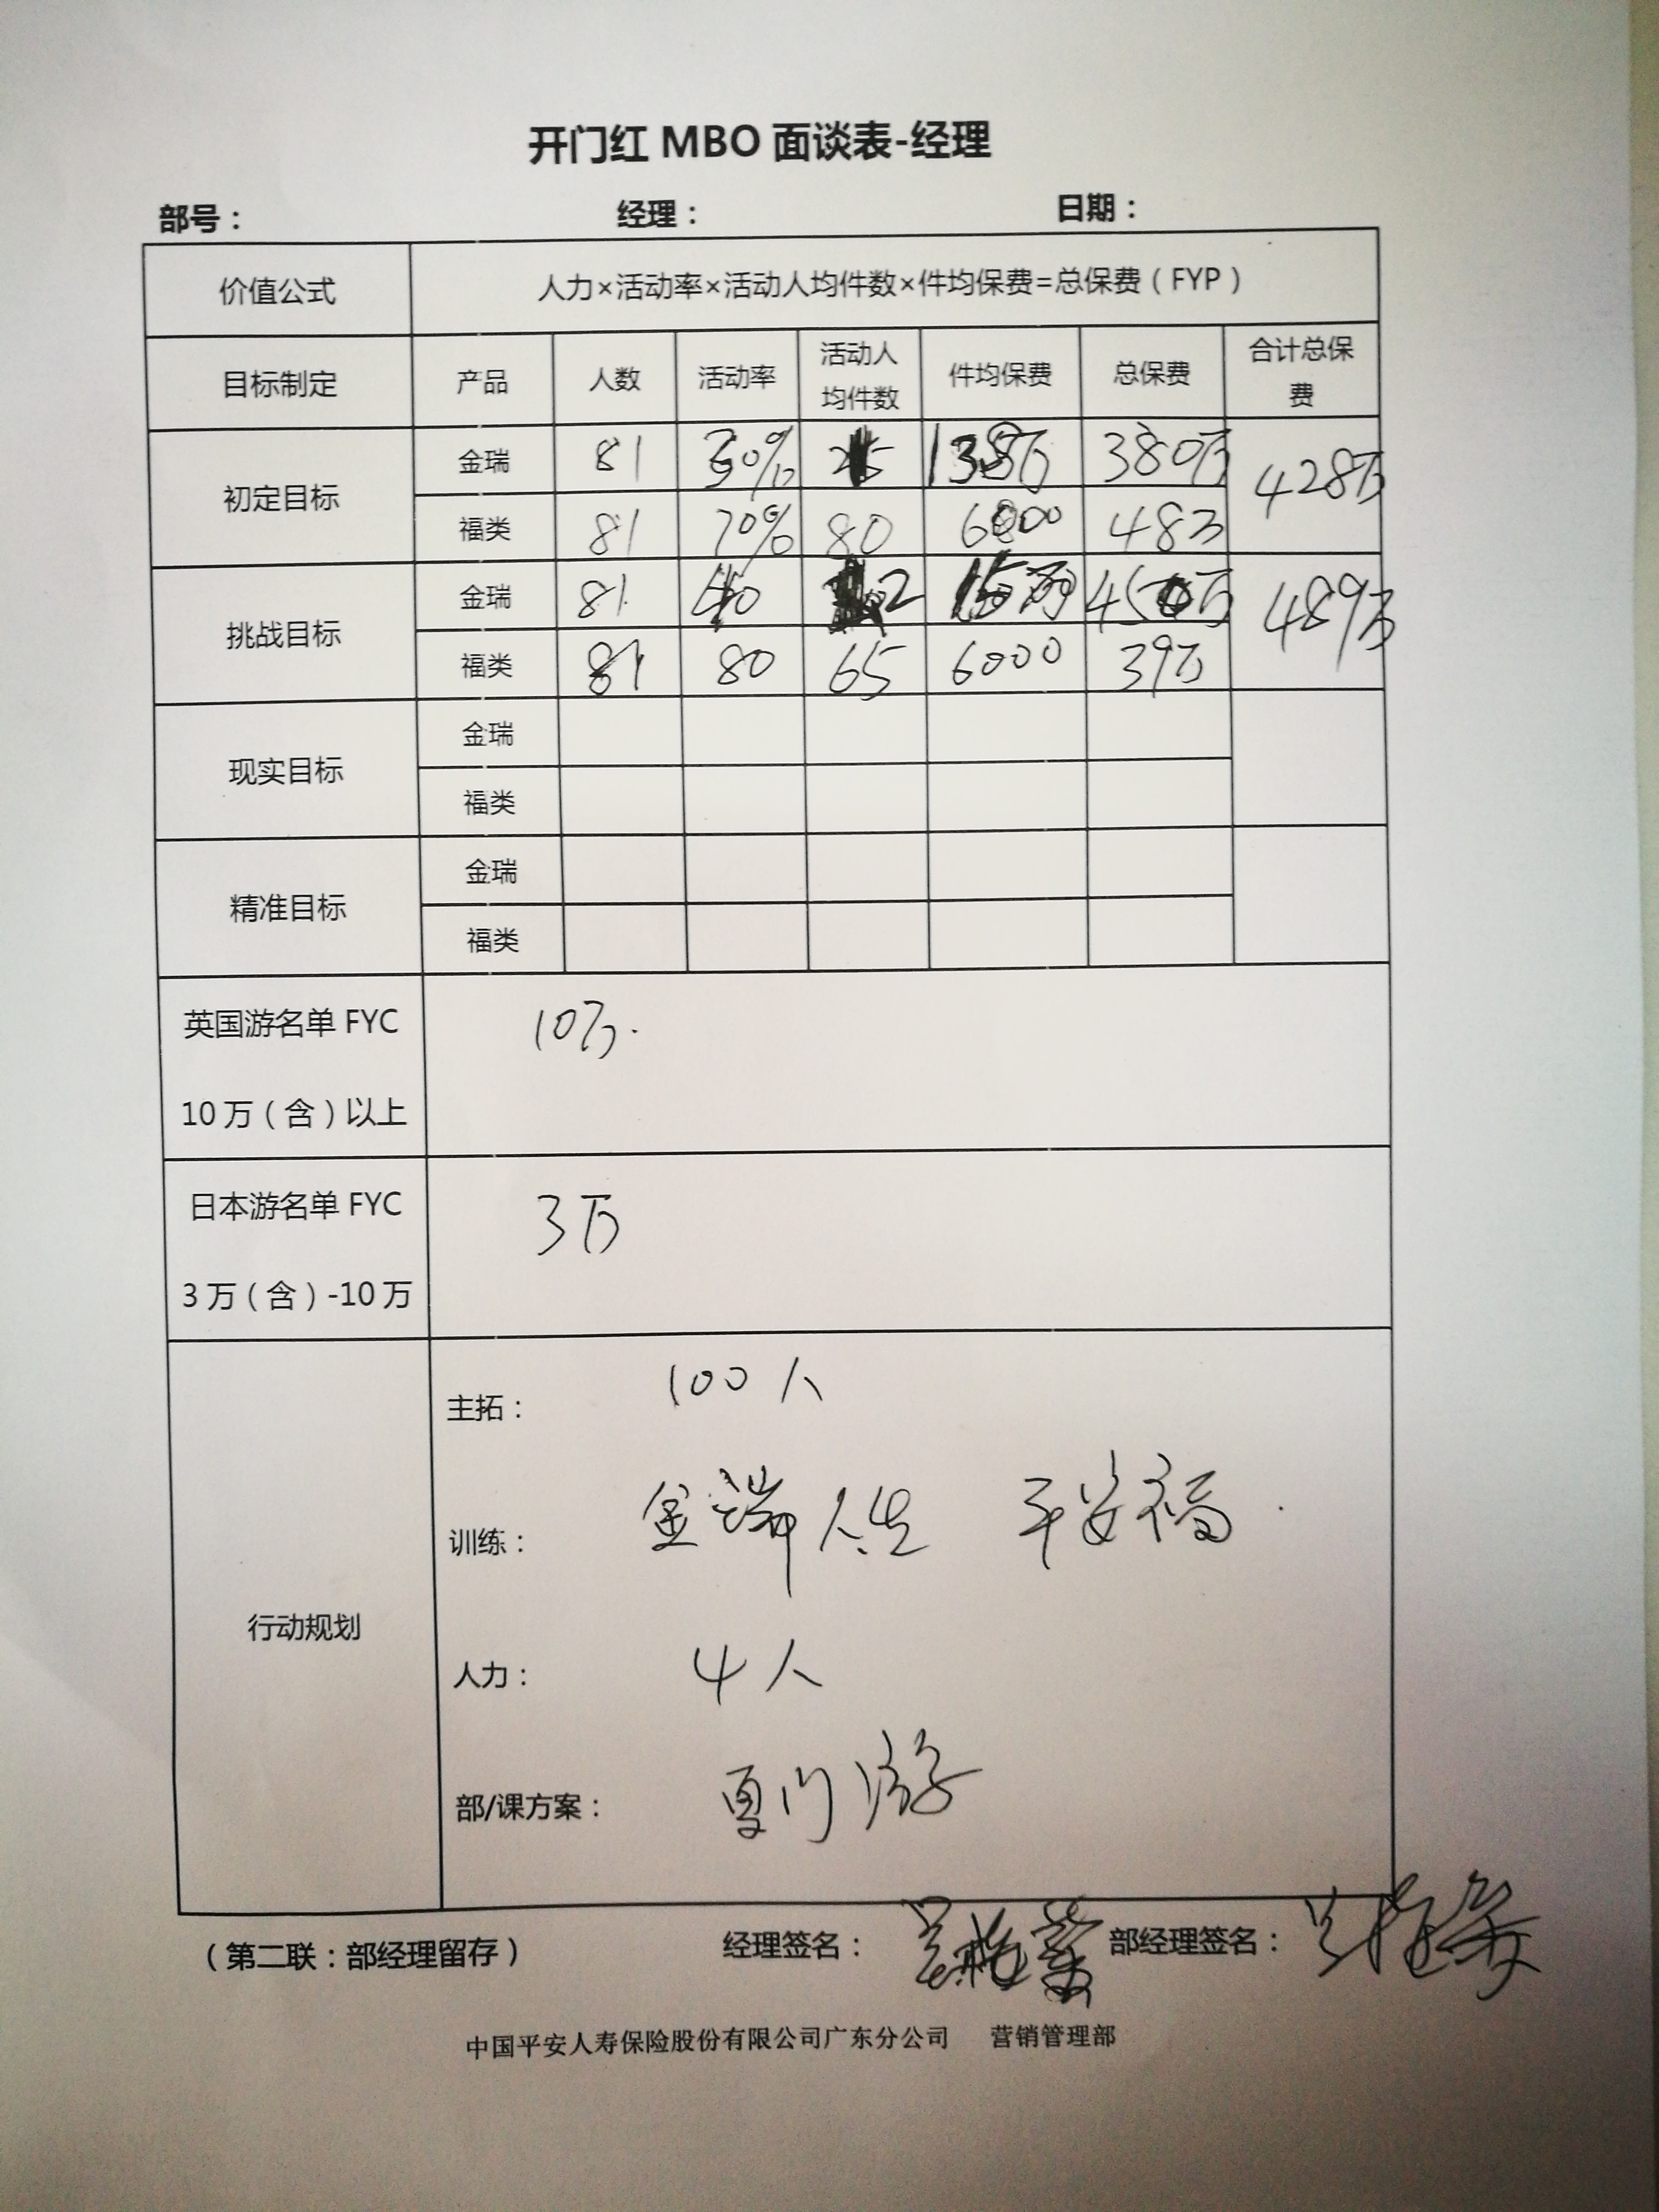 开门红 MBO 面谈表-经理
部号： 经理： 日期：
价值公式 人力×活动率×活动人均件数×件均保费=总保费（FYP）
目标制定 产品 人数 活动率 活动人均件数 件均保费 总保费 合计总保费
初定目标 金瑞 81 30% 380万 428万
福类 81 70% 80 6000 48万
挑战目标 金瑞 81 40 2 15万 450万 489万
福类 81 80 65 6000 39万
现实目标 金瑞
福类
精准目标 金瑞
福类
英国游名单 FYC 10万.
10 万（含）以上
日本游名单 FYC 3万
3 万（含）-10 万
行动规划
主拓： 100人
训练： 金瑞人生 平安福.
人力： 4人
部/课方案： 厦门游
（第二联：部经理留存） 经理签名： 部经理签名：
中国平安人寿保险股份有限公司广东分公司 营销管理部